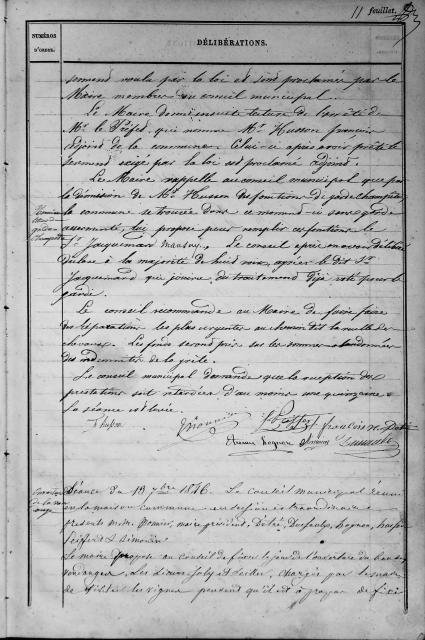 11 feuillet.
NUMÉROS
D'ORDRE.
DÉLIBÉRATIONS.
serment voulu par la loi et sont proclamés par le
Maire membres du conseil municipal.
Le Maire donne ensuite lecture de l'arrêté de
Mr le Préfet, qui nomme Mr Husson françois
adjoint de la commune. Celui-ci après avoir prêté le
serment exigé par la loi est proclamé adjoint.
Le Maire rappelle au conseil municipal que par
la démission de Mr Husson des fonctions de garde champêtre
la commune se trouve dans ce moment-ci sans garde
assermenté, lui propose pour remplir ces fonctions le
Sr Jacquemard. Le conseil après en avoir délibéré
déclare à la majorité de huit voix, agréer le dit Sr
Jacquemard qui jouira du traitement déjà voté pour le
garde.
Le conseil recommande au Maire de faire faire
des réparations les plus urgentes au chemin dit la ruelle des
chevaux. Les fonds seront pris sur les sommes
Le conseil municipal demande que la réception des
prestations soit retardée d'au moins une quinzaine.
La séance est levée.
françois
Etienne Hognon
Séance du 13 7bre 1846. Le Conseil municipal réuni
en la maison commune en session extraordinaire
présents MM. maire président,
Simonin
Le maire propose au conseil de fixer le jour de l'ouverture du ban de
vendanges. Les Sieurs Joly et chargés par le maire
de visiter les vignes pensent qu'il est à propos de fixer